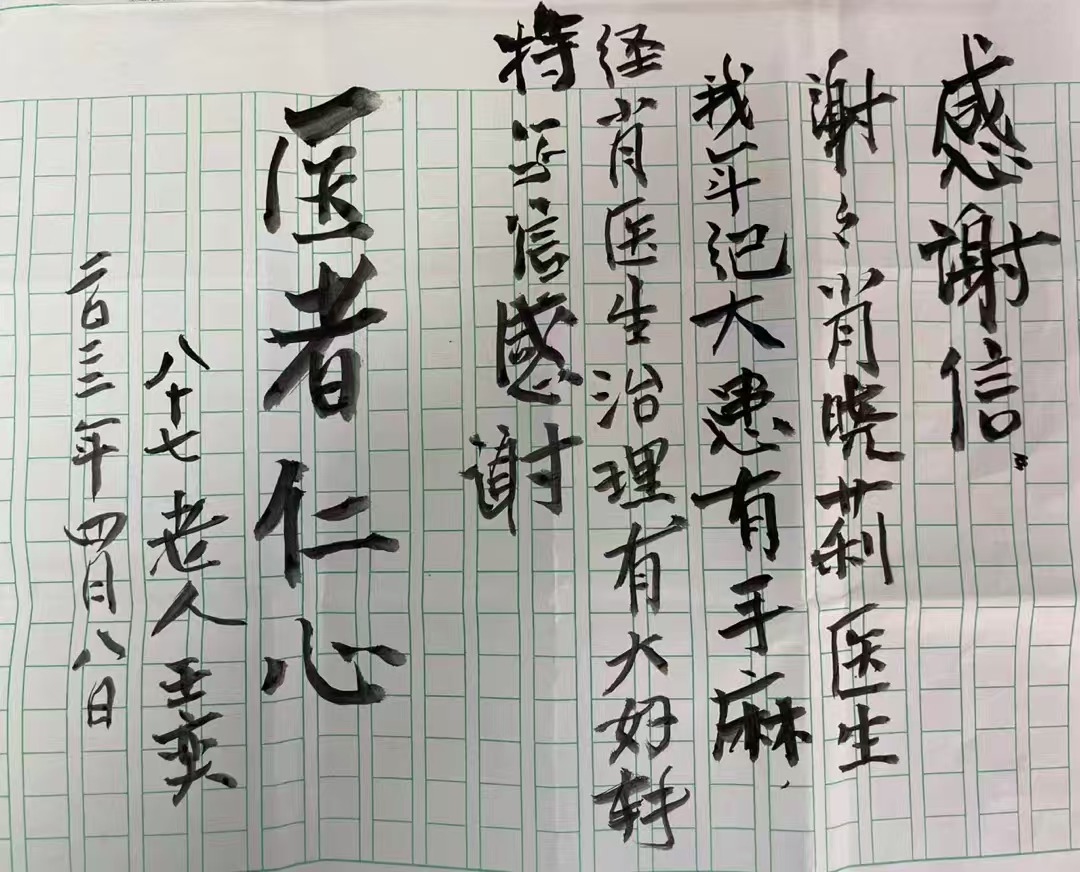 感谢信
谢々肖晓莉医生
我年纪大患有手麻,
经肖医生治理有大好转
特写信感谢
医者仁心
八十七老人王奕
二〇二三年四月八日